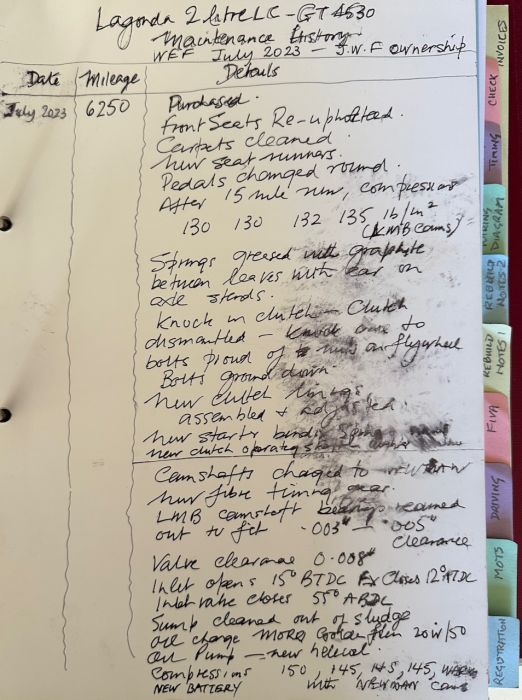 Lagonda 2 litre LC - GT 4530
Maintenance History
WEF July 2023 — J.W.F ownership
Date Mileage Details
July 2023 6250 Purchased.
Front Seats Re-upholstered.
Carpets cleaned.
New seat runners.
Pedals changed round.
After 15 mile run, compressions
130 130 132 135 lb/in²
(LMB cams)
Springs greased with graphite
between leaves with car on
axle stands.
Knock in clutch — Clutch
dismantled — knock due to
bolts proud of nuts on flywheel
Bolts ground down.
New clutch linings
assembled + adjusted.
New starter bendix Spring
new clutch operating
Camshafts changed to NEWMAN
New fibre timing gear.
LMB camshaft bearings reamed
out to fit .003" — .005"
clearance
Valve clearance 0.008"
Inlet opens 15° BTDC Ex Closes 12° ATDC
Inlet valve closes 55° ABDC
Sump cleaned out of sludge
Oil change MORRIS Golden film 20W/50
Oil Pump — new helical.
Compressions 150, 145, 145, 145,
NEW BATTERY with NEWMAN cams
CHECK INVOICES
TIMING
WIRING DIAGRAM
REBUILD NOTES 2
REBUILD NOTES 1
FIVA
DRIVING
MOTS
REGISTRATION